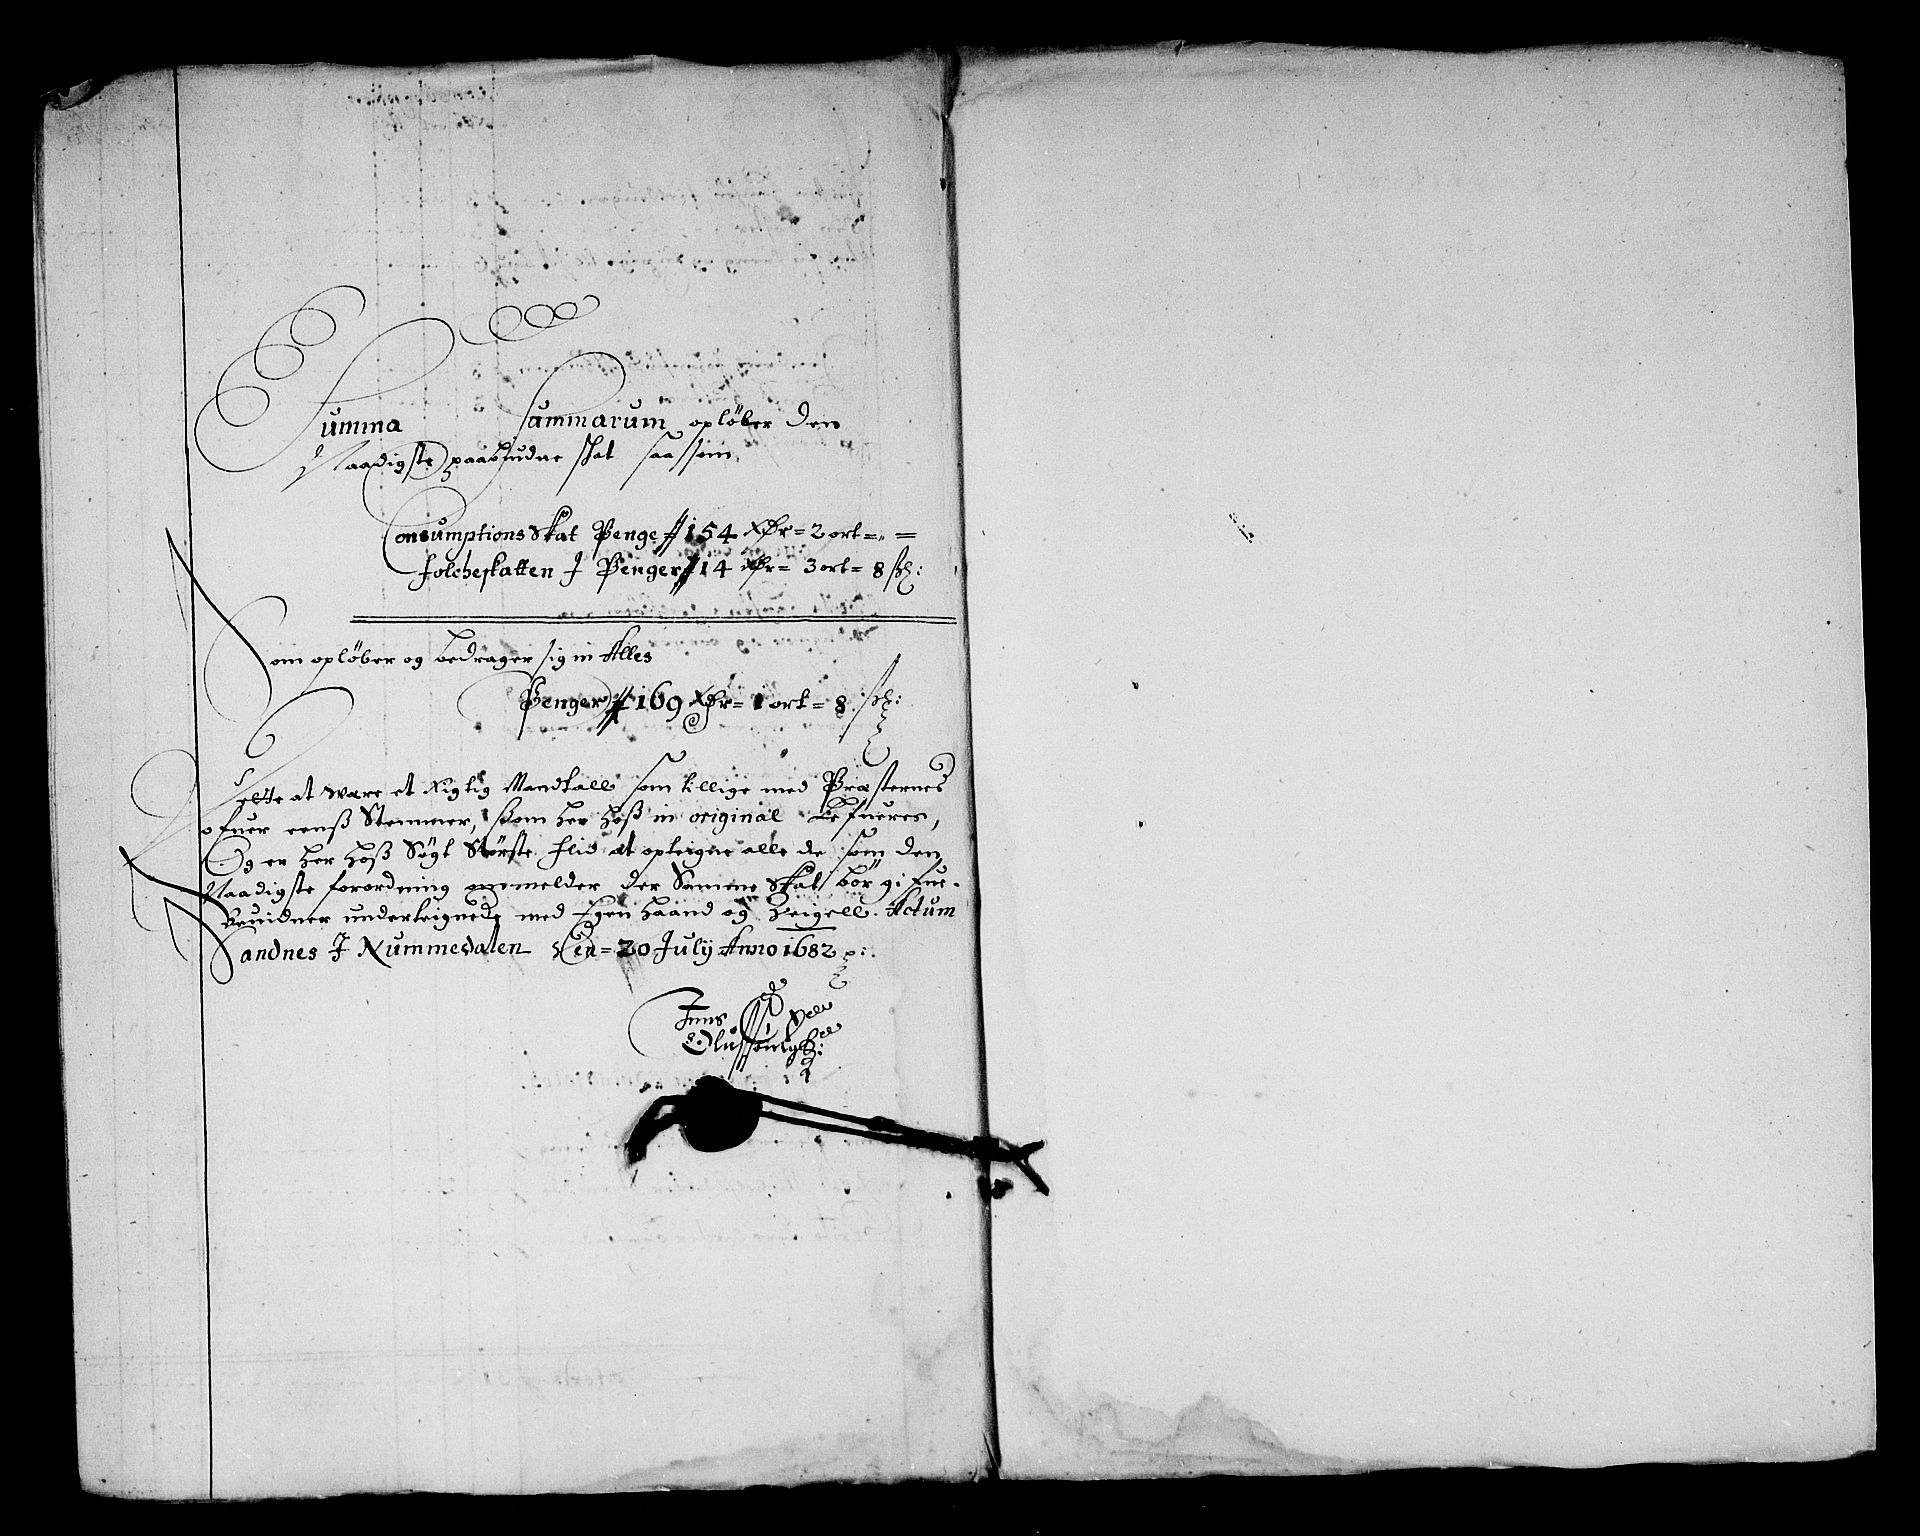 Summa Summarum opløber den
Naadigste paabudne skat saasom,
Consumptions Skat Penge # 154 Rdr = 2 ort = „ =
Folcheskatten J Penger # 14 Rdr = 3 ort = 8 sk:
Som opløber og bedrager sig in Alles
Penger # 169 Rdr = 1 ort = 8 sk:
Dette at være et Rigtig Mandtall som tillige med Præsternes
ofuer eenß Stemmer, som her hoß in original Lefueres,
Og er her hoß Søgt Største flid at opteigne alle de som den
Naadigste forordning ommelder der Samme Skat bør gifue.
Beuidner underteignede med Egen haand og Zeigell. Actum
Sandnes J Nummedalen Den = 20 Julij Anno 1682 p:.
Jens
Olufssøn